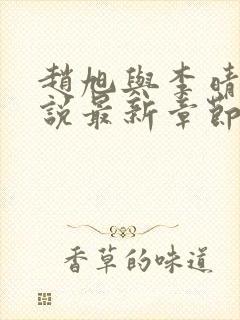 趙旭與李晴
說最新章節
香草的味道